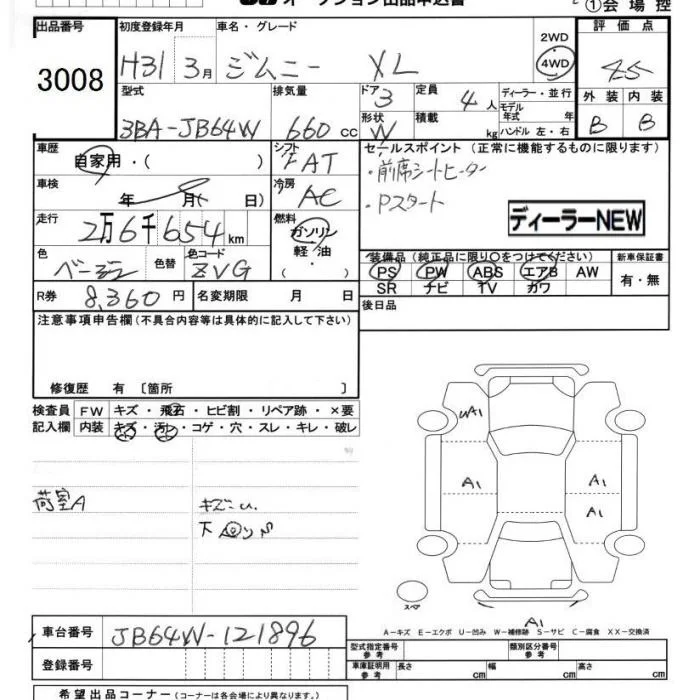 オークション出品申込書
①会場控
出品番号
3008
初度登録年月
H31 3月
車名・グレード
ジムニー XL
2WD
4WD
評価点
4.5
外装 内装
B B
型式
3BA-JB64W
排気量
660 cc
ドア 3
形状 W
定員 4 人
積載 kg
ディーラー・並行
モデル年式 年
ハンドル 左・右
車歴
自家用・( )
シフト
FAT
車検
年 月( 日)
冷房
AC
走行
2万6千654 km
燃料
ガソリン
軽油
・
色
ベージュ
色替
色コード
ZVG
R券 8,360 円
名変期限 月 日
セールスポイント(正常に機能するものに限ります)
・前席シートヒーター
・Pスタート
ディーラーNEW
装備品(純正品に限り〇をつけてください)
PS PW ABS エアB AW
SR ナビ TV カワ
新車保証書
有・無
後日品
注意事項申告欄(不具合内容等は具体的に記入して下さい)
修復歴 有〔箇所 〕
検査員
記入欄
FW キズ・飛石・ヒビ割・リペア跡・×要
内装 キズ・汚レ・コゲ・穴・スレ・キレ・破レ
荷室A
キズ
下
UA1
A1
A1
A1
A1
スペア
A-キズ E-エクボ U-凹み W-補修跡 S-サビ C-腐食 XX-交換済
車台番号 JB64W-121896
登録番号
型式指定番号
参考
類別区分番号
参考
車庫証明用
参考
長さ cm
幅 cm
高さ cm
希望出品コーナー(コーナーは各会場により異なります。)